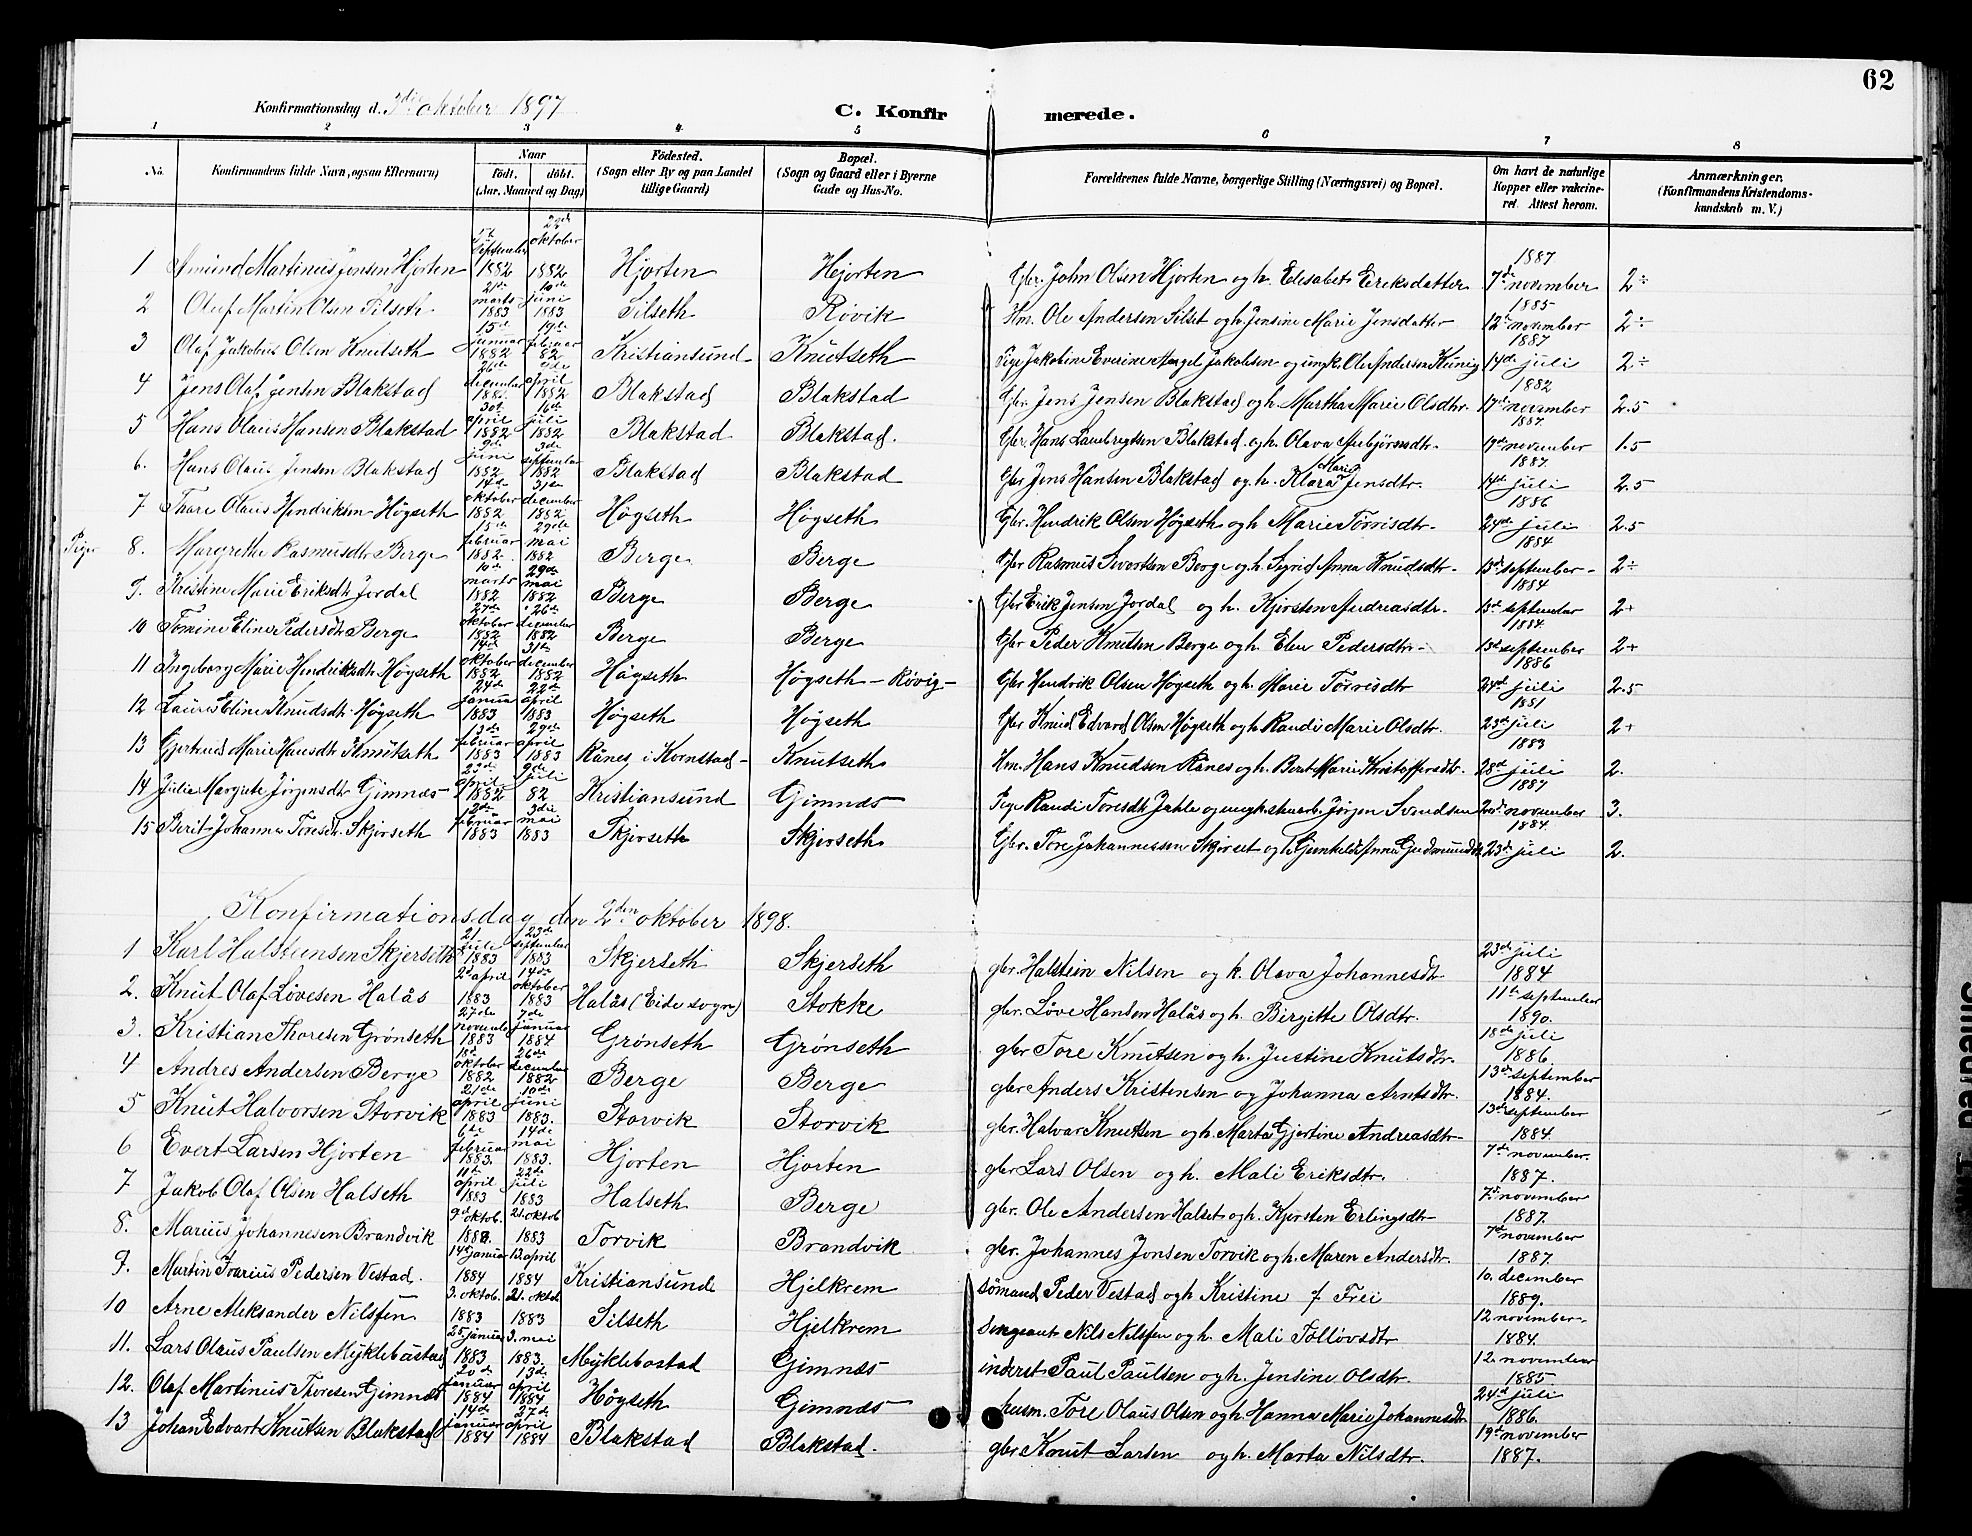 62
Konfirmationsdag d. 3die oktober 1897
C. Konfirmerede.
1 2 3 4 5 6 7 8
No.
Konfirmandens fulde Navn, ogsaa Efternavn)
Naar
Födt. döbt.
(Aar, Maaned og Dag)
Födested.
(Sogn eller By og paa Landet
tillige Gaard)
Bopæl.
(Sogn og Gaard eller i Byerne
Gade og Hus-No.
Forældrenes fulde Navne, borgerlige Stilling (Næringsvei) og Bopæl.
Om havt de naturlige
Kopper eller vakcine-
ret. Attest herom.
Anmærkninger.
(Konfirmandens Kristendoms-
kundskab m. V.)
1 Amund Martinus Jensen Hjorten september 1882 oktober 1882 Hjorten Hjorten Gbr. John Olsen Hjorten og h. Elisabet Eriksdatter 1887 7de november 2÷
2 Oluf Martin Olsen Silseth 21de marts 1883 10de juni 1883 Silseth Røvik Hm. Ole Andersen Silset og h. Jensine Marie Jensdatter 1885 12te november 2÷
3 Olaf Jakobus Olsen Knutseth 15de januar 1882 19de februar 82 Kristiansund Knutseth Pige Jakobine Everine Jakobsen og ungk. Ole Andersen 1887 14de juli 2÷
4 Jens Olaf Jensen Blakstad 26de december april 1882 Blakstad Blakstad Gbr. Jens Jensen Blakstad og h. Martha Marie Olsdtr. 1882 17de november 2.5
5 Hans Olaus Hansen Blakstad 30te april 1882 16de juli 1882 Blakstad Blakstad. Gbr. Hans Lambrigtsen Blakstad og h. Olava Aubjørnsdtr. 1887 17de november 1.5
6. Hans Olaus Jensen Blakstad 9de juni 1882 3de september 1882 Blakstad Blakstad Gbr Jens Hansen Blakstad og h. Klara Marie Jensdtr. 1887. 14de juli 2.5
7 Thore Olaus Hendriksen Høgseth 14de oktober 1882 31te december 1882 Høgseth Høgseth Gbr. Hendrik Olsen Høgseth og h Marie Torrisdtr. 1886 24de juli 2.5
Piger 8. Margrethe Rasmusdtr Berge 15de februar 1882 29de mai 1882 Berge Berge Gbr Rasmus Sivertsen Berge og h. Sigrid Anna Knudsdtr. 1884 13de september 2÷
9. Kristine Marie Eriksdtr Jordal 10de marts 1882 29de mai 1882 Berge Berge Gbr Erik Jensen Jordal og h. Kjersten Andreasdtr. 1884 13de september 2+
10 Tomine Eline Pedersdtr Berge 27de oktober 1882 26de december 1882 Berge Berge Gbr Peder Knutsen Berge og h. Elen Pedersdtr. 1884 13de september 2+
11 Ingeborg Marie Hendriksdtr Høgseth 14de oktober 1882 31te december 1882 Høgseth Høgseth - Røvig - Gbr Hendrik Olsen Høgseth og h. Marie Torrisdtr 1886 24de juli 2.5
12 Lauris Eline Knudsdtr Høgseth 24de januar 1883 22de april 1883 Høgseth Høgseth Gbr Knud Edvard Olsen Høgseth og h Randi Marie Olsdtr. 1881 23de juli 2+
13 Gjertrud Marie Hansdtr Knutseth 13de februar 1883 29de april 1883 Rånes i Kornstad Knutseth Hm. Hans Knudsen Rånes og h. Berit Marie Kristoffersdtr. 1883 28de juli 2.
14 Julie Margrete Jørgensdtr Gimnæs 23de april 1882 9de juli 82 Kristiansund Gimnæs Pige Randi Toresdtr Jahle og ungk. Jørgen Svendsen 1887 20de november 3.
15 Berit Johanna Toresdtr Skjerseth februar 1883 3die mai 1883 Skjerseth Skjerseth Gbr. Tore Johannessen Skjerset og h. Gunhild Anna Gudmundsdtr 1884. 23de juli 2.
Konfirmationsdag den 2den oktober 1898.
1 Karl Halsteinsen Skjerseth 21 juli 1883 23de september 1883 Skjerseth Skjerseth gbr. Halstein Nilsen og k. Olava Johannesdtr. 23de juli 1884
2. Knut Olaf Løvesen Halås 2d april 1883 14de oktober 1883 Halås (Eide sogn) Stokke gbr. Løve Hansen Halås og h. Birgitte Olsdtr. 11te september 1890.
3. Kristian Thoresen Grønseth 27de november 1883 7de januar 1884 Grønseth Grønseth gbr Tore Knutsen og h. Justine Knutsdtr. 18de juli 1886.
4 Andres Andersen Berge 18de oktober 1882 26de december 1882 Berge Berge gbr Anders Kristensen og Johanna Arntsdtr. 13de september 1884.
5 Knut Halvorsen Storvik 21de april 1883 10de juni 1883. Storvik Storvik gbr. Halvar Knutsen og h. Marta Gjertine Andreasdtr 13de september 1884.
6 Evert Larsen Hjorten 6de februar 1883. 14de mai 1883. Hjorten Hjorten gbr Lars Olsen og h. Mali Eriksdtr. 7de november. 1887.
7 Jakob Olaf Olsen Halseth 11te april 1883 22de juli 1883 Halseth Berge gbr. Ole Andersen Halset og h. Kjersten Erlingsdtr 7de november 1887.
8. Marius Johannesen Brandvik 9de oktob. 1883. 21. oktob 1883 Torvik Brandvik gbr. Johannes Jonsen Torvik og h. Maren Andersdtr. 7de november 1887.
9. Martin Ivarius Pedersen Vestad. 14de januar 1884 13. april 1884 Kristiansund Hjelkrem sømand Peder Vestad og h Kristine f Frei 10. december 1889.
10 Arne Aleksander Nilssen 3. oktob. 1883 21. oktob 1883 Silseth Hjelkrem Sergeant Nils Nilssen og h. Mali Folløvsdtr 12 november 1884.
11. Lars Olaus Paulsen Myklebostad 25 januar 1883 3. mai 1883. Myklebostad Gimnæs inderst Paul Paulsen og h. Jensine Olsdtr. 12. november 1885
12. Olaf Martinus Thoresen Gimnæs 20de januar 1884 13de april 1884 Høgseth Gimnæs husm. Tore Olaus Olsen og h. Hanna Marie Johannesdtr 24de juli 1886.
13 Johan Edvart Knutsen Blakstad 14de januar 1884 27de april 1884 Blakstad Blakstad. gbr Knut Larsen og h. Marta Nilsdtr. 19de november 1887.